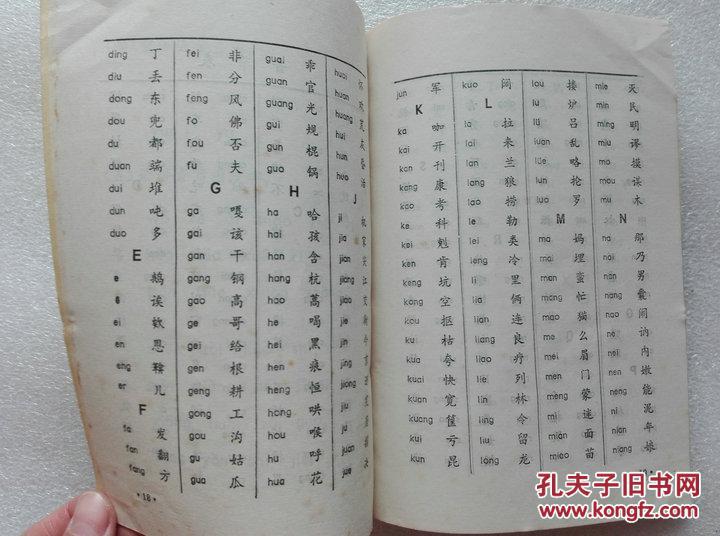 ding 丁
diu 丢
dong 东
dou 兜
du 都
duan 端
dui 堆
dun 吨
duo 多
E
e 鹅
ê 诶
ei 欸
en 恩
eng 鞥
er 儿
F
fa 发
fan 翻
fang 方
fei 非
fen 分
feng 风
fo 佛
fou 否
fu 夫
G
ga 嘎
gai 该
gan 干
gang 钢
gao 高
ge 哥
gei 给
gen 根
geng 耕
gong 工
gou 沟
gu 姑
gua 瓜
guai 乖
guan 官
guang 光
gui 规
gun 棍
guo 锅
H
ha 哈
hai 孩
han 含
hang 杭
hao 蒿
he 喝
hei 黑
hen 痕
heng 恒
hong 哄
hou 喉
hu 呼
hua 花
huai 怀
huan 欢
huang 荒
hui 灰
hun 昏
huo 活
J
ji 机
jia 家
jian 尖
jiang 江
jiao 交
jie
jin 今
jing 京
jiong
jiu
ju 居
juan 捐
jue 决
·18·
jun 军
K
ka 咖
kai 开
kan 刊
kang 康
kao 考
ke 科
kei 剋
ken 肯
keng 坑
kong 空
kou 抠
ku 枯
kua 夸
kuai 快
kuan 宽
kuang 筐
kui 亏
kun 昆
kuo 阔
L
la 拉
lai 来
lan 兰
lang 狼
lao 捞
le 勒
lei 类
leng 冷
li 里
lia 俩
lian 连
liang 良
liao 疗
lie 列
lin 林
ling 令
liu 留
long 龙
lou 搂
lu 炉
lü 吕
luan 乱
lüe 略
lun 抡
luo 罗
M
ma 妈
mai 埋
man 蛮
mang 忙
mao 猫
me 么
mei 眉
men 门
meng 蒙
mi 迷
mian 面
miao 苗
mie 灭
min 民
ming 明
miu 谬
mo 摸
mou 谋
mu 木
N
na 那
nai 乃
nan 男
nang 囊
nao 闹
ne 讷
nei 内
nen 嫩
neng 能
ni 泥
nian 年
niang 娘
孔夫子旧书网
KONGFZ.COM